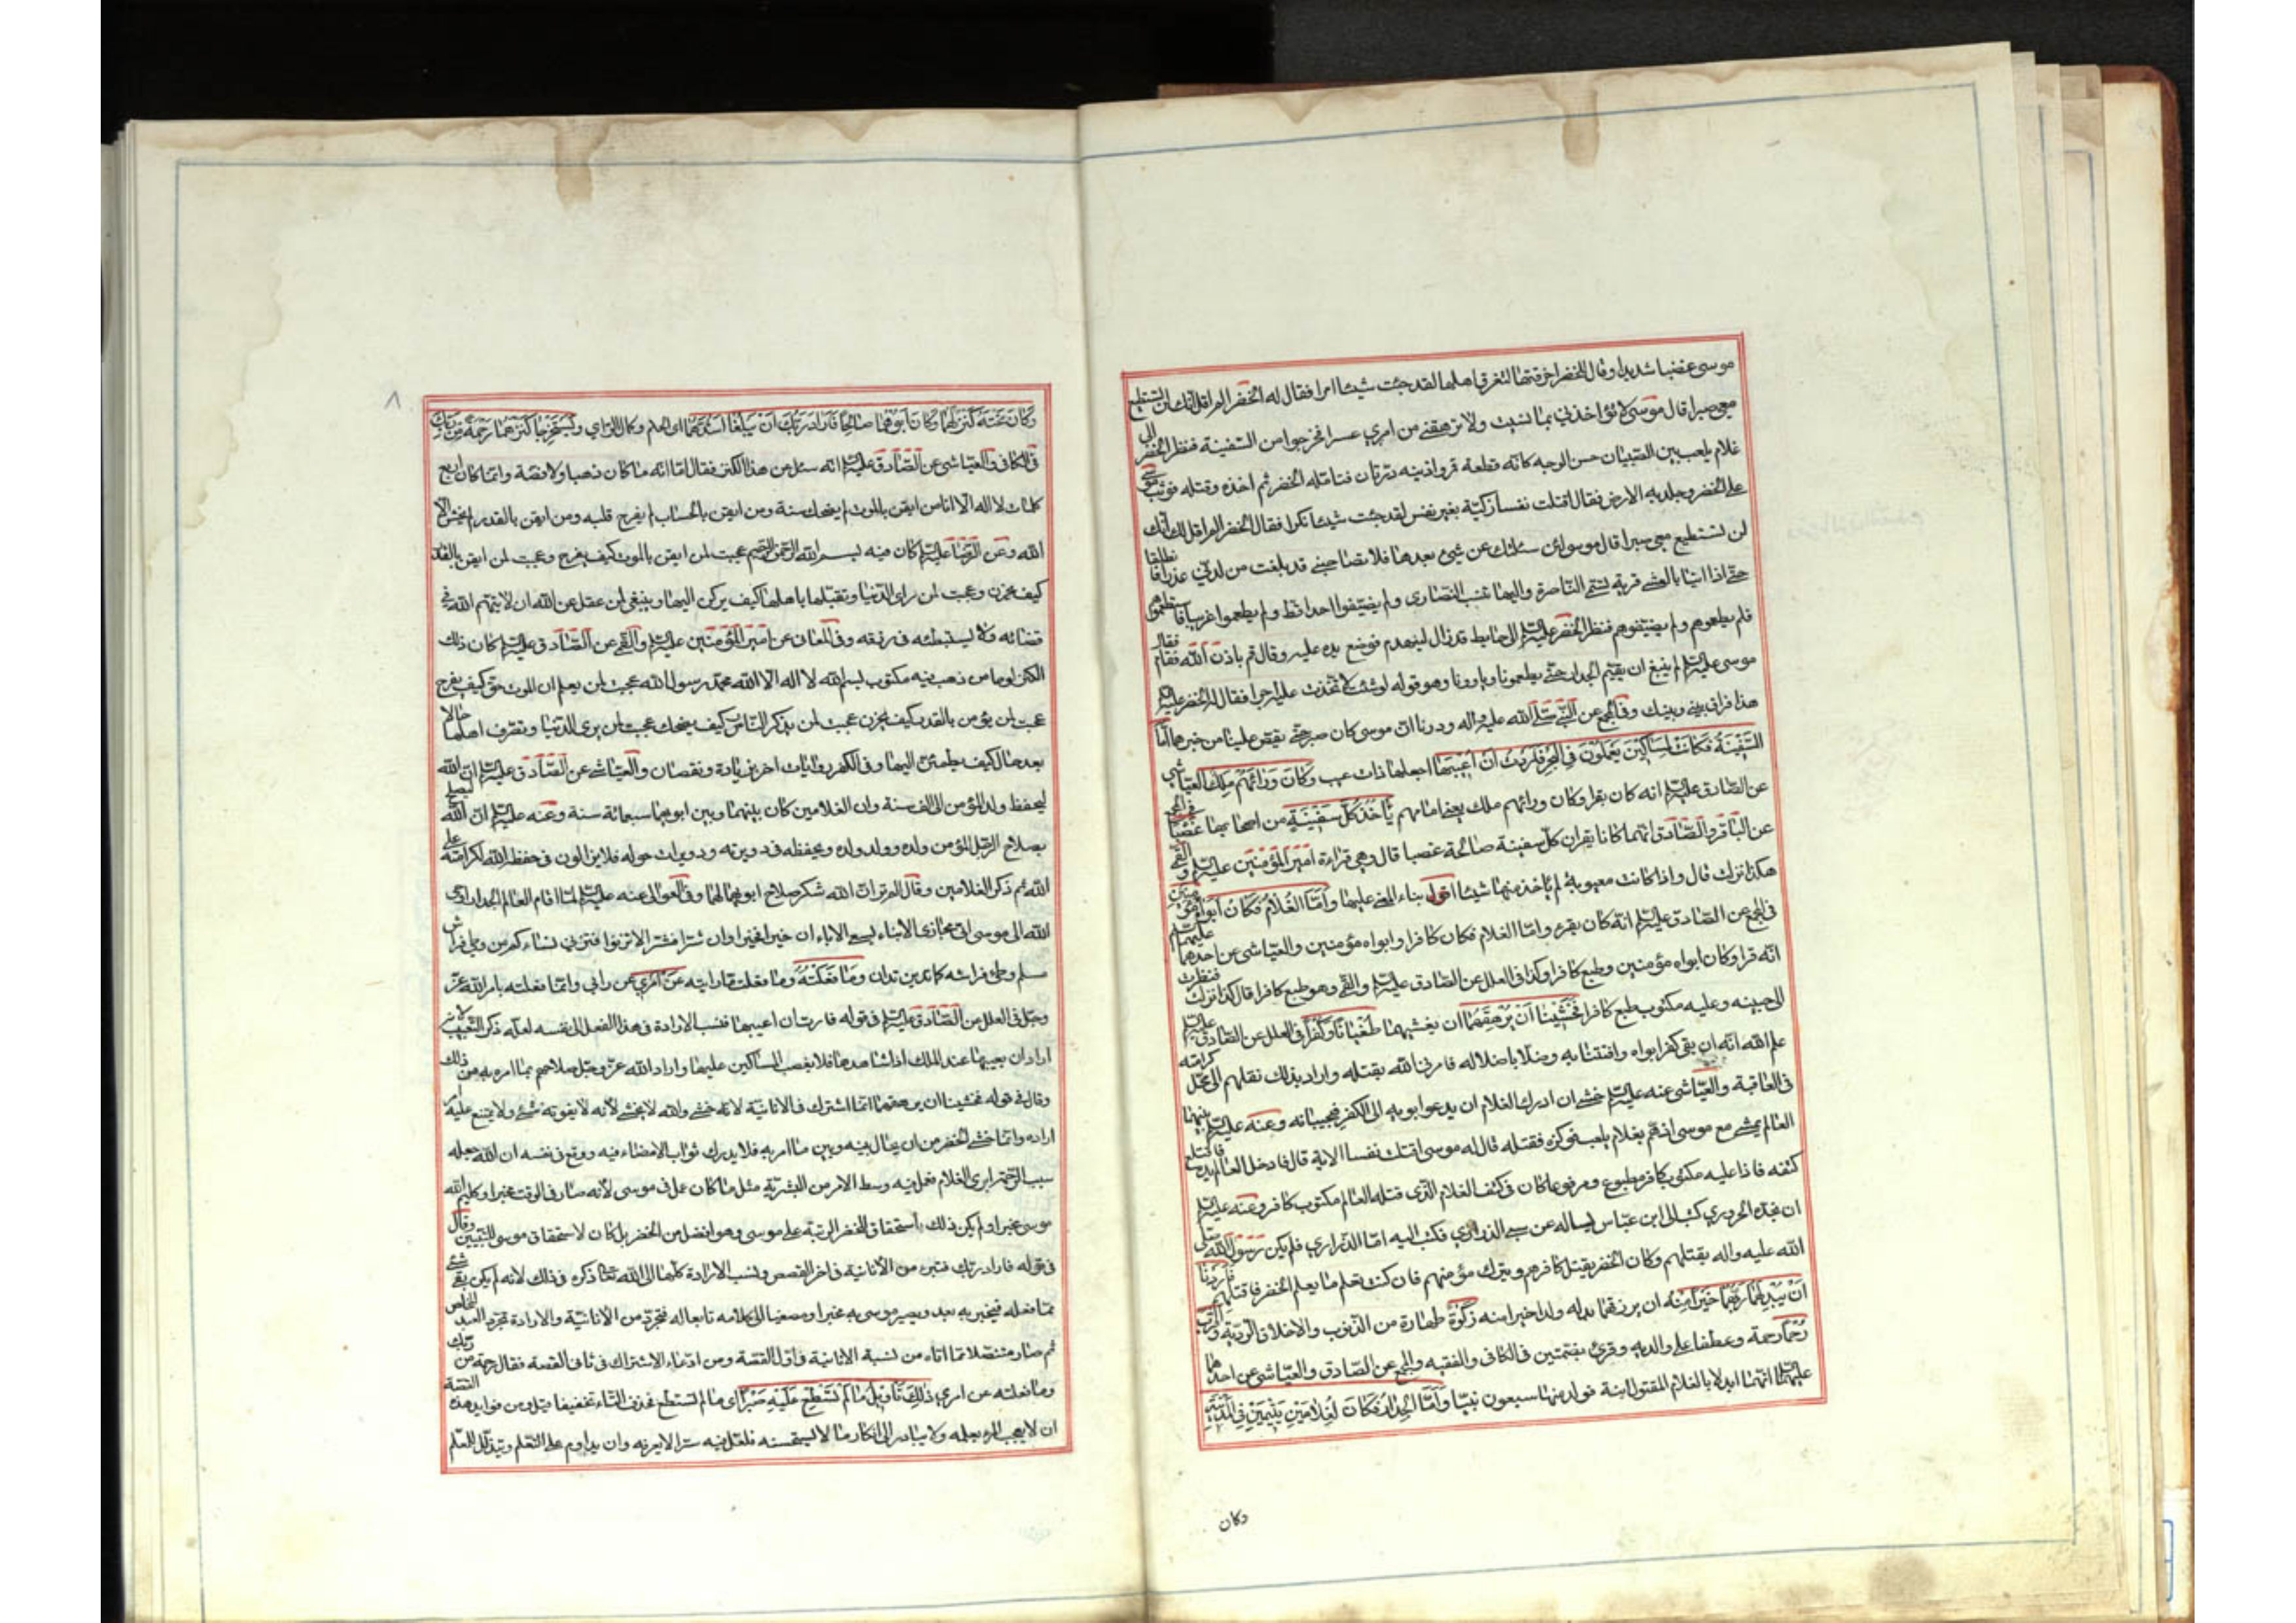 موسى غضبا شديدا وقال للخضر اخرقتها لتغرق اهلها لقد جئت شيئا امرا فقال له الخضر الم اقل انك لن تستطيع
معي صبرا قال موسى لا تؤاخذني بما نسيت ولا ترهقني من امري عسرا فخرجوا من السفينة فنظر الخضر الى
غلام يلعب بين الصبيان حسن الوجه كانه قطعة قمر واذنيه درتان فتامله الخضر ثم اخذه وقتله فوثب موسى
على الخضر وجلد به الارض فقال اقتلت نفسا زكية بغير نفس لقد جئت شيئا نكرا فقال الخضر الم اقل لك انك
لن تستطيع معي صبرا قال موسى ان سئلتك عن شيء بعدها فلا تصاحبني قد بلغت من لدني عذرا فانطلقا
حتى اذا اتيا بالعشي قرية تسمى الناصرة واليها تنسب النصارى ولم يضيفوا احدا قط ولم يطعموا غريبا فاستطعموهم
فلم يطعموهم ولم يضيفوهم فنظر الخضر عليه السلم الى حايط قد زال لينهدم فوضع يده عليه وقال قم باذن الله فقام فقال
موسى عليه السلم لم ينبغ ان تقيم الجدار حتى يطعمونا ويأوونا وهو قوله لو شئت لاتخذت عليه اجرا فقال له الخضر عليه السلم
هذا فراق بيني وبينك وفي المجمع عن النبي صلى الله عليه واله وددنا ان موسى كان صبر حتى يقص علينا من خبرهما اما
السفينة فكانت لمساكين يعملون في البحر فاردت ان اعيبها اجعلها ذات عيب وكان ورائهم ملك العياشي
عن الصادق عليه السلم انه كان يقرا وكان ورائهم ملك يعني امامهم ياخذ كل سفينة من اصحابها غصبا في المجمع
عن الباقر والصادق انهما كانا يقران كل سفينة صالحة غصبا قال وهي قراءة امير المؤمنين عليه السلم والقمي
هكذا نزلت قال واذا كانت معيوبة لم ياخذ منها شيئا اقول بناء المعنى عليها واما الغلام فكان ابواه مؤمنين
في المجمع عن الصادق عليه السلم انه كان يقرء واما الغلام فكان كافرا وابواه مؤمنين والعياشي عن احدهما عليهما السلم
انه قرا وكان ابواه مؤمنين وطبع كافرا وكذا في العلل عن الصادق عليه السلم والقمي وهو طبع كافرا قال كذا نزلت فنظرت
الى جبينه وعليه مكتوب طبع كافرا فخشينا ان يرهقهما ان يغشيهما طغيانا وكفرا في العلل عن الصادق عليه السلم
علم الله انه ان بقي كفر ابواه وافتتنا به وضلا باضلاله فامرني الله بقتله واراد بذلك نقلهم الى محل كرامته
في العاقبة والعياشي عنه عليه السلم خشي ان ادرك الغلام ان يدعو ابويه الى الكفر فيجيبانه وعنه عليه السلم بينهما
العالم يمشي مع موسى اذ هم بغلام يلعب فوكزه فقتله قال له موسى اقتلت نفسا الاية قال فادخل العالم يده فاقتلع
كتفه فاذا عليه مكتوب كافر مطبوع ومرفوعا كان في كتف الغلام الذي قتله العالم مكتوب كافر وعنه عليه السلم
ان نجدة الحروري كتب الى ابن عباس يساله عن سبي الذراري فكتب اليه اما الذراري فلم يكن رسول الله صلى
الله عليه واله يقتلهم وكان الخضر يقتل كافرهم ويترك مؤمنهم فان كنت تعلم ما يعلم الخضر فاقتلهم فاردنا
ان يبدلهما ربهما خيرا منه ان يرزقهما بدله ولدا خيرا منه زكوة طهارة من الذنوب والاخلاق الردية واقرب
رحما رحمة وعطفا على والديه وقرئ بضمتين في الكافي والفقيه والمجمع عن الصادق والعياشي عن احدهما
عليهما السلم انهما ابدلا بالغلام المقتول ابنة فولد منها سبعون نبيا واما الجدار فكان لغلامين يتيمين في المدينة
وكان
٨
وكان تحته كنز لهما وكان ابوهما صالحا فاراد ربك ان يبلغا اشدهما اى الحلم وكمال الراي ويستخرجا كنزهما رحمة من ربك
في الكافي والعياشي عن الصادق عليه السلم انه سئل عن هذا الكنز فقال اما انه ما كان ذهبا ولا فضة وانما كان اربع
كلمات لا اله الا انا من ايقن بالموت لم يضحك سنة ومن ايقن بالحساب لم يفرح قلبه ومن ايقن بالقدر لم يخش الا
الله وعن الرضا عليه السلم كان فيه بسم الله الرحمن الرحيم عجبت لمن ايقن بالموت كيف يفرح وعجبت لمن ايقن بالقدر
كيف يحزن وعجبت لمن راى الدنيا وتقلبها باهلها كيف يركن اليها وينبغي لمن عقل عن الله ان لا يتهم الله في
قضائه ولا يستبطئه في رزقه وفي المعاني عن امير المؤمنين عليه السلم والقمي عن الصادق عليه السلم كان ذلك
الكنز لوحا من ذهب فيه مكتوب بسم الله لا اله الا الله محمد رسول الله عجبت لمن يعلم ان الموت حق كيف يفرح
عجبت لمن يؤمن بالقدر كيف يحزن عجبت لمن يذكر النار كيف يضحك عجبت لمن يرى الدنيا وتصرف اهلها حالا
بعد حال كيف يطمئن اليها وفي الكنز روايات اخر بزيادة ونقصان والعياشي عن الصادق عليه السلم ان الله
ليحفظ ولد المؤمن الى الف سنة وان الغلامين كان بينهما وبين ابويهما سبعمائة سنة وعنه عليه السلم ان الله ليصلح
بصلاح الرجل المؤمن ولده وولد ولده ويحفظه في دويرته ودويرات حوله فلا يزالون في حفظ الله لكرامته على
الله ثم ذكر الغلامين وقال الم تر ان الله شكر صلاح ابويهما لهما وفي العوالى عنه عليه السلم لما اقام العالم الجدار اوحى
الله الى موسى اني مجازى الابناء بسعي الاباء ان خيرا فخيرا وان شرا فشرا لا تزنوا فتزني نساءكم من وطئ فراش
مسلم وطئ فراشه كما تدين تدان وما فعلته وما فعلت ما رايته عن امري عن رايي وانما فعلته بامر الله عز
وجل في العلل عن الصادق عليه السلم في قوله فاردت ان اعيبها فنسب الارادة في هذا الفعل الى نفسه لعلة ذكر التعييب لانه
اراد ان يعيبها عند الملك اذا شاهدها فلا يغصب المساكين عليها واراد الله عز وجل صلاحهم بما امره به من ذلك
وقال في قوله فخشينا ان يرهقهما انما اشترك في الانانية لانه خشي والله لا يخشى لانه لا يفوته شئ ولا يمتنع عليه امر
اراده وانما خشي الخضر من ان يحال بينه وبين ما امر به فلا يدرك ثواب الامضاء فيه ووقع في نفسه ان الله جعله
سببا لرحمة ابوى الغلام فعمل فيه وسط الامر من البشرية مثل ما كان عمل في موسى لانه صار في الوقت مخبرا وكليم الله
موسى مخبرا ولم يكن ذلك باستحقاق للخضر الرتبة على موسى وهو افضل من الخضر بل كان لاستحقاق موسى للتبيين وقال
في قوله فاراد ربك فتبرء من الأنانية في اخر القصص ونسب الارادة كلها الى الله تعالى ذكره في ذلك لانه لم يكن بقي شئ
مما فعله فيخبر به بعد ويصير موسى به مخبرا ومصغيا الى كلامه تابعا له فتجرد من الانانية والارادة تجرد العبد المخلص
ثم صار متنصلا مما اتاه من نسبة الانانية في اول القصة ومن ادعاء الاشتراك في ثاني القصة فقال رحمة من ربك
وما فعلته عن امري ذلك تاويل ما لم تسطع عليه صبرا اى ما لم تستطع فحذف التاء تخفيفا قيل ومن فوايد هذه القصة
ان لا يعجب المرء بعلمه ولا يبادر الى انكار ما لا يستحسنه فلعل فيه سرا لا يعرفه وان يداوم على التعلم ويتذلل للمعلم